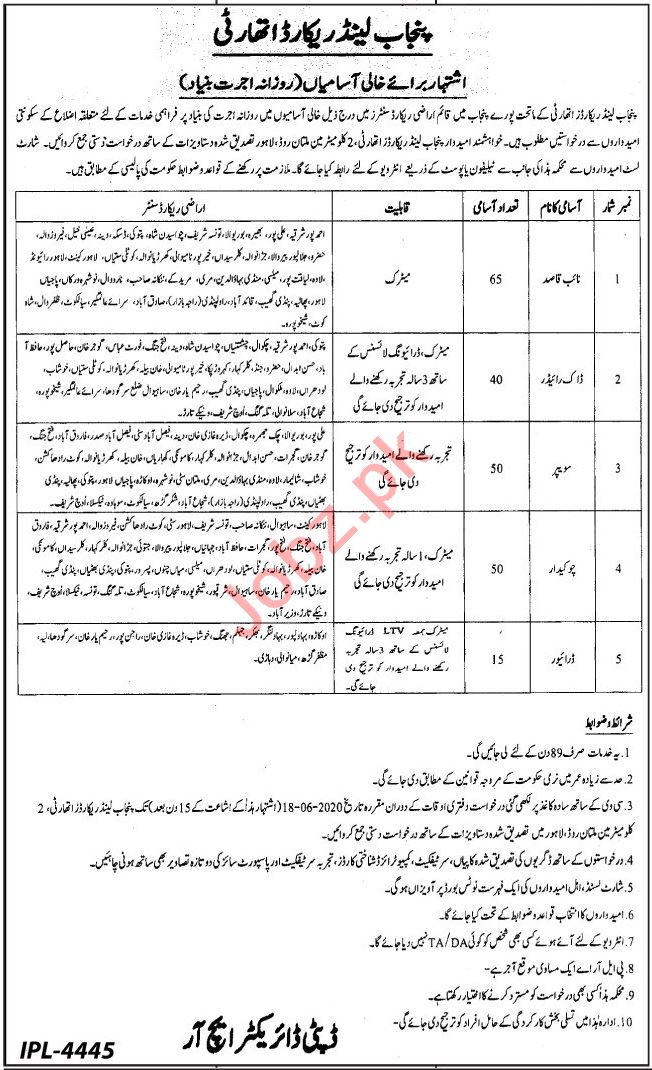 پنجاب لینڈ ریکارڈ اتھارٹی
اشتہار برائے خالی آسامیاں (روزانہ اجرت بنیاد)
پنجاب لینڈ ریکارڈز اتھارٹی کے ماتحت پورے پنجاب میں قائم اراضی ریکارڈ سنٹرز میں درج ذیل خالی آسامیوں میں روزانہ اجرت کی بنیاد پر فراہمی خدمات کے لئے متعلقہ اضلاع کے سکونتی
امیدواروں سے درخواستیں مطلوب ہیں۔ خواہشمند امیدوار پنجاب لینڈ ریکارڈز اتھارٹی، 2 کلومیٹر مین ملتان روڈ، لاہور تصدیق شدہ دستاویزات کے ساتھ درخواست دستی جمع کروائیں۔ شارٹ
لسٹ امیدواروں سے محکمہ ہذا کی جانب سے ٹیلیفون یا پوسٹ کے ذریعے انٹرویو کے لئے رابطہ کیا جائے گا۔ ملازمت پر رکھنے کے قواعد و ضوابط حکومت کی پالیسی کے مطابق ہیں۔
نمبر شمار آسامی کا نام تعداد آسامی قابلیت اراضی ریکارڈ سنٹر
1 نائب قاصد 65 میٹرک
احمد پور شرقیہ، علی پور، بھیرہ، بوریوالا، تونسہ شریف، چوآسیدن شاہ، پتوکی، ڈسکہ، دینہ، عیسیٰ خیل، فیروزوالہ،
حضرو، جلالپور پیروالا، جڑانوالہ، کلرسیداں، خیرپور ٹامیوالی، کھرڑیانوالہ، کوٹلی ستیاں، لاہور کینٹ، لاہور رائیونڈ
لاوہ، لیاقت پور، میلسی، منڈی بہاؤالدین، مری، مریدکے، ننکانہ صاحب، نارووال، نوشہرہ ورکاں، پاجیاں
لاہور، پھالیہ، پنڈی گھیب، قائد آباد، راولپنڈی (راجہ بازار)، صادق آباد، سرائے عالمگیر، سیالکوٹ، ظفروال، شاہ
کوٹ، شیخوپورہ۔
2 ڈاک رائیڈر 40
میٹرک، ڈرائیونگ لائسنس کے
ساتھ 3 سالہ تجربہ رکھنے والے
امیدوار کو ترجیح دی جائے گی
پتوکی، احمد پور شرقیہ، چکوال، چشتیاں، چوآسیدن شاہ، دینہ، فتح جنگ، فورٹ عباس، گوجرخان، حاصل پور، حافظ آباد
آباد، حسن ابدال، حضرو، جنڈ، کلرکہار، کہروڑپکا، خیرپور ٹامیوالی، خان بیلہ، کھرڑیانوالہ، کوٹلی ستیاں، خوشاب،
لودھراں، لاوہ، ملکوال، پاجیاں، پنڈی گھیب، رحیم یار خان، ساہیوال ضلع سرگودھا، سرائے عالمگیر، شیخوپورہ،
شجاع آباد، سلانوالی، تلہ گنگ، اوچ شریف، ونیکے تارڑ۔
3 سویپر 50
تجربہ رکھنے والے امیدوار کو ترجیح
دی جائے گی
علی پور، بوریوالا، چک جھمرہ، چکوال، ڈیرہ غازی خان، دینہ، فیصل آباد سٹی، فیصل آباد صدر، فاروق آباد، فتح جنگ،
گوجرخان، گجرات، حسن ابدال، جڑانوالہ، کلرکہار، کامونکی، کھاریاں، خان بیلہ، کھرڑیانوالہ، کوٹ رادھا کشن،
خوشاب، شالیمار، لاوہ، منڈی بہاؤالدین، مری، ملتان سٹی، نوشہرہ، اوکاڑہ، پاجیاں لاہور، پتوکی، پھالیہ، پنڈی
بھٹیاں، پنڈی گھیب، راولپنڈی (راجہ بازار)، شجاع آباد، شکرگڑھ، سیالکوٹ، سوہاوہ، ٹیکسلا، اوچ شریف۔
4 چوکیدار 50
میٹرک، 1 سالہ تجربہ رکھنے والے
امیدوار کو ترجیح دی جائے گی
لاہور کینٹ، ساہیوال، ننکانہ صاحب، تونسہ شریف، لاہور سٹی، کوٹ رادھا کشن، فیروزوالہ، احمد پور شرقیہ، فاروق
آباد، فتح جنگ، فتح پور، گجرات، حافظ آباد، جہانیاں، جلالپور پیروالا، جتوئی، جڑانوالہ، کلرکہار، کلرسیداں، کامونکی،
خان بیلہ، کھرڑیانوالہ، کوٹلی ستیاں، لودھراں، میلسی، میاں چنوں، پسرور، پتوکی، پنڈی بھٹیاں، پنڈی گھیب،
صادق آباد، رحیم یار خان، ساہیوال، شرقپور، شیخوپورہ، شجاع آباد، سیالکوٹ، تلہ گنگ، تونسہ، ٹیکسلا، اوچ شریف،
ونیکے تارڑ، وزیر آباد۔
5 ڈرائیور 15
میٹرک بمعہ LTV ڈرائیونگ
لائسنس کے ساتھ 3 سالہ تجربہ
رکھنے والے امیدوار کو ترجیح دی
جائے گی۔
اوکاڑہ، بہاولپور، بہاولنگر، بھکر، جہلم، جھنگ، خوشاب، ڈیرہ غازی خان، راجن پور، رحیم یار خان، سرگودھا، لیہ،
مظفر گڑھ، میانوالی، وہاڑی۔
شرائط و ضوابط
1. یہ خدمات صرف 89 دن کے لئے لی جائیں گی۔
2. حد سے زیادہ عمر میں نرمی حکومت کے مروجہ قوانین کے مطابق دی جائے گی۔
3. سی وی کے ساتھ سادہ کاغذ پر لکھی گئی درخواست دفتری اوقات کے دوران مقررہ تاریخ 18-06-2020 (اشتہار ہذا کے اشاعت کے 15 دن بعد) تک پنجاب لینڈ ریکارڈز اتھارٹی، 2
کلومیٹر مین ملتان روڈ، لاہور میں تصدیق شدہ دستاویزات کے ساتھ درخواست دستی جمع کروائیں۔
4. درخواستوں کے ساتھ ڈگریوں کی تصدیق شدہ کاپیاں، سرٹیفکیٹ، کمپیوٹرائزڈ شناختی کارڈز، تجربہ سرٹیفکیٹ اور پاسپورٹ سائز کی دو تازہ تصاویر بھی ساتھ ہونی چاہئیں۔
5. شارٹ لسٹڈ، اہل امیدواروں کی ایک فہرست نوٹس بورڈ پر آویزاں ہو گی۔
6. امیدواروں کا انتخاب قواعد و ضوابط کے تحت کیا جائے گا۔
7. انٹرویو کے لئے آئے ہوئے کسی بھی شخص کو کوئی TA/DA نہیں دیا جائے گا۔
8. پی ایل آر اے ایک مساوی موقع آجر ہے۔
9. محکمہ ہذا کسی بھی درخواست کو مسترد کرنے کا اختیار رکھتا ہے۔
10. ادارہ ہذا میں تسلی بخش کارکردگی کے حامل افراد کو ترجیح دی جائے گی۔
ڈپٹی ڈائریکٹر ایچ آر
IPL-4445
Jobz.pk